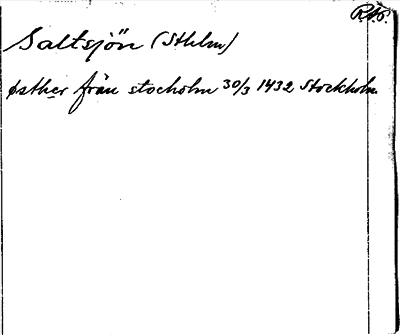 R.A.p.
Saltsjön (Sthlm)
østher från stocholm 30/3 1432 Stockholm